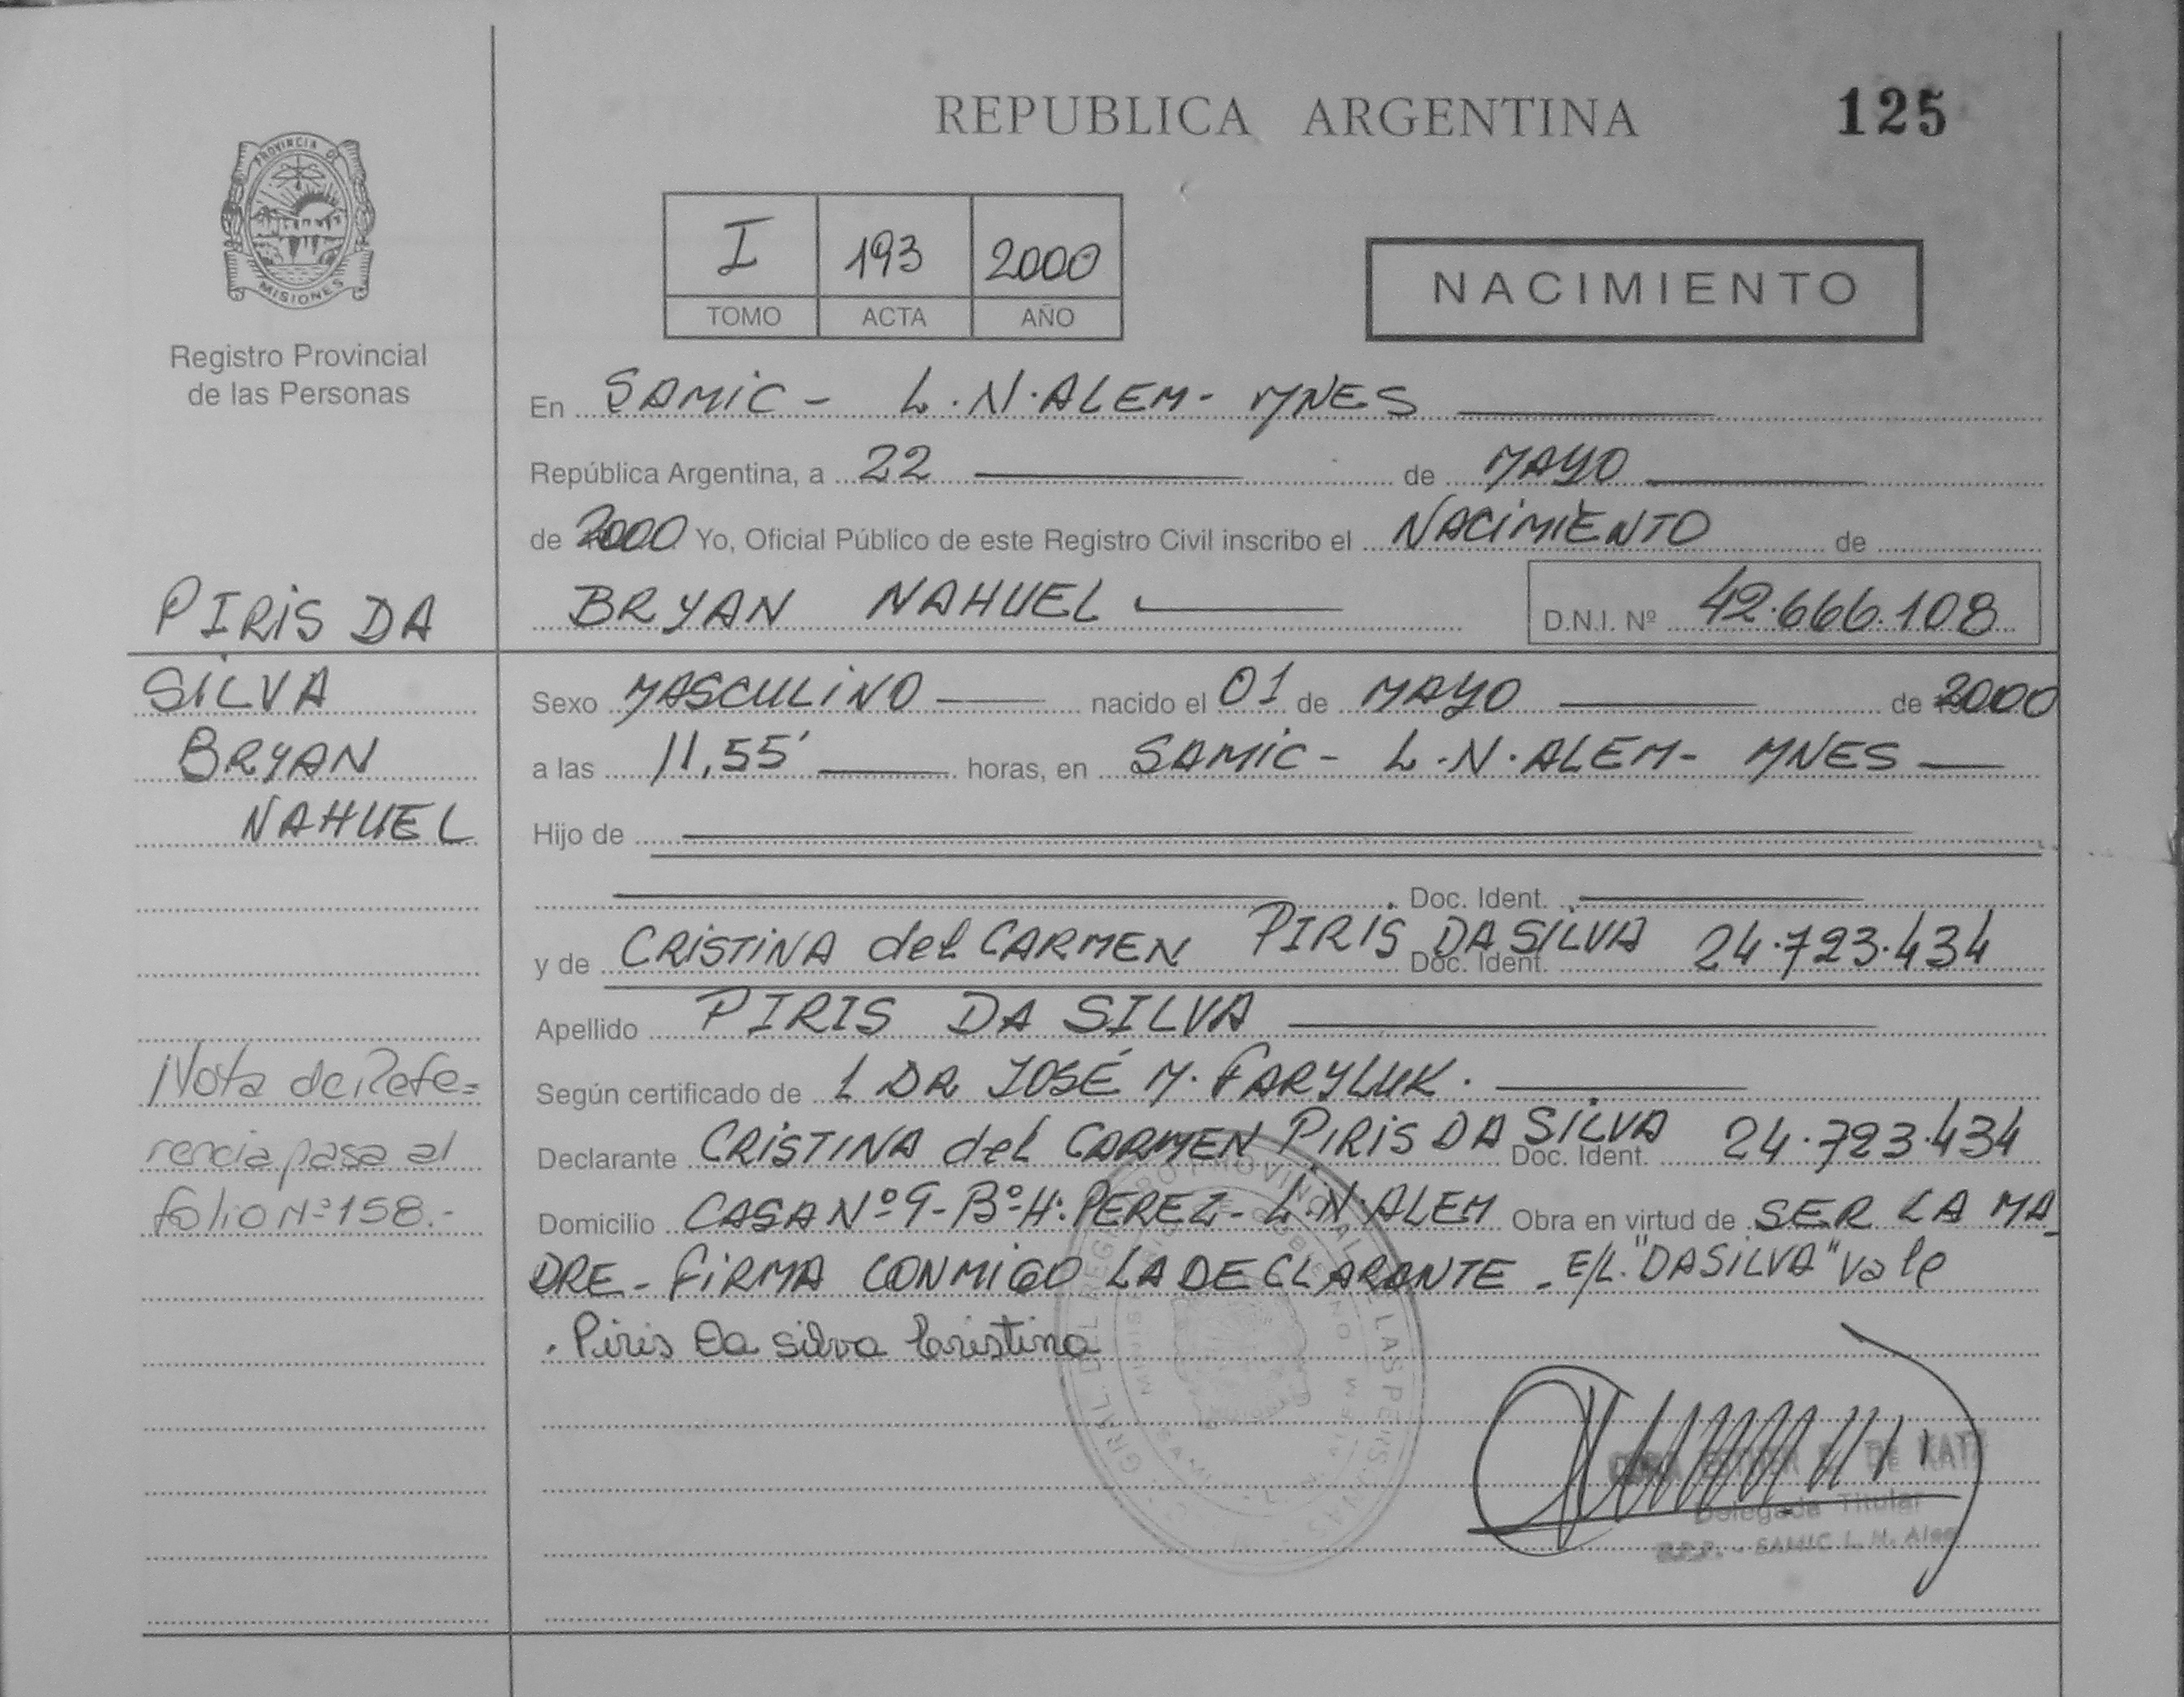 REPUBLICA ARGENTINA
125
PROVINCIA DE
MISIONES
Registro Provincial
de las Personas
I 193 2000
TOMO ACTA AÑO
NACIMIENTO
En SAMiC - L.N.ALEM - MNES
República Argentina, a 22 de MAYO
de 2000 Yo, Oficial Público de este Registro Civil inscribo el NACiMiENTO de
BRYAN NAHUEL D.N.I. Nº 42.666.108
PIRiS DA
SiLVA
BRYAN
NAHUEL
Sexo MASCULiNO nacido el 01 de MAYO de 2000
a las 11,55' horas, en SAMiC - L.N.ALEM - MNES
Hijo de
Doc. Ident.
y de CRiSTiNA del CARMEN PIRiS DA SiLVA Doc. Ident. 24.723.434
Apellido PIRIS DA SILVA
Según certificado de L DR JOSÉ M. FARYLUK.
Declarante CRiSTiNA del CARMEN PiRiS DA SiLVA Doc. Ident. 24.723.434
Domicilio CASA Nº 9 - Bº H: PEREZ - L.N.ALEM Obra en virtud de SER LA MA
DRE - FiRMA CONMiGO LA DECLARANTE - E/L. "DA SiLVA" Vale
. Piris Da Silva Cristina
Nota de Refe=
rencia pasa al
folio Nº 158.-
DE KATZ
Delegada Titular
SAMIC L. N. Alem